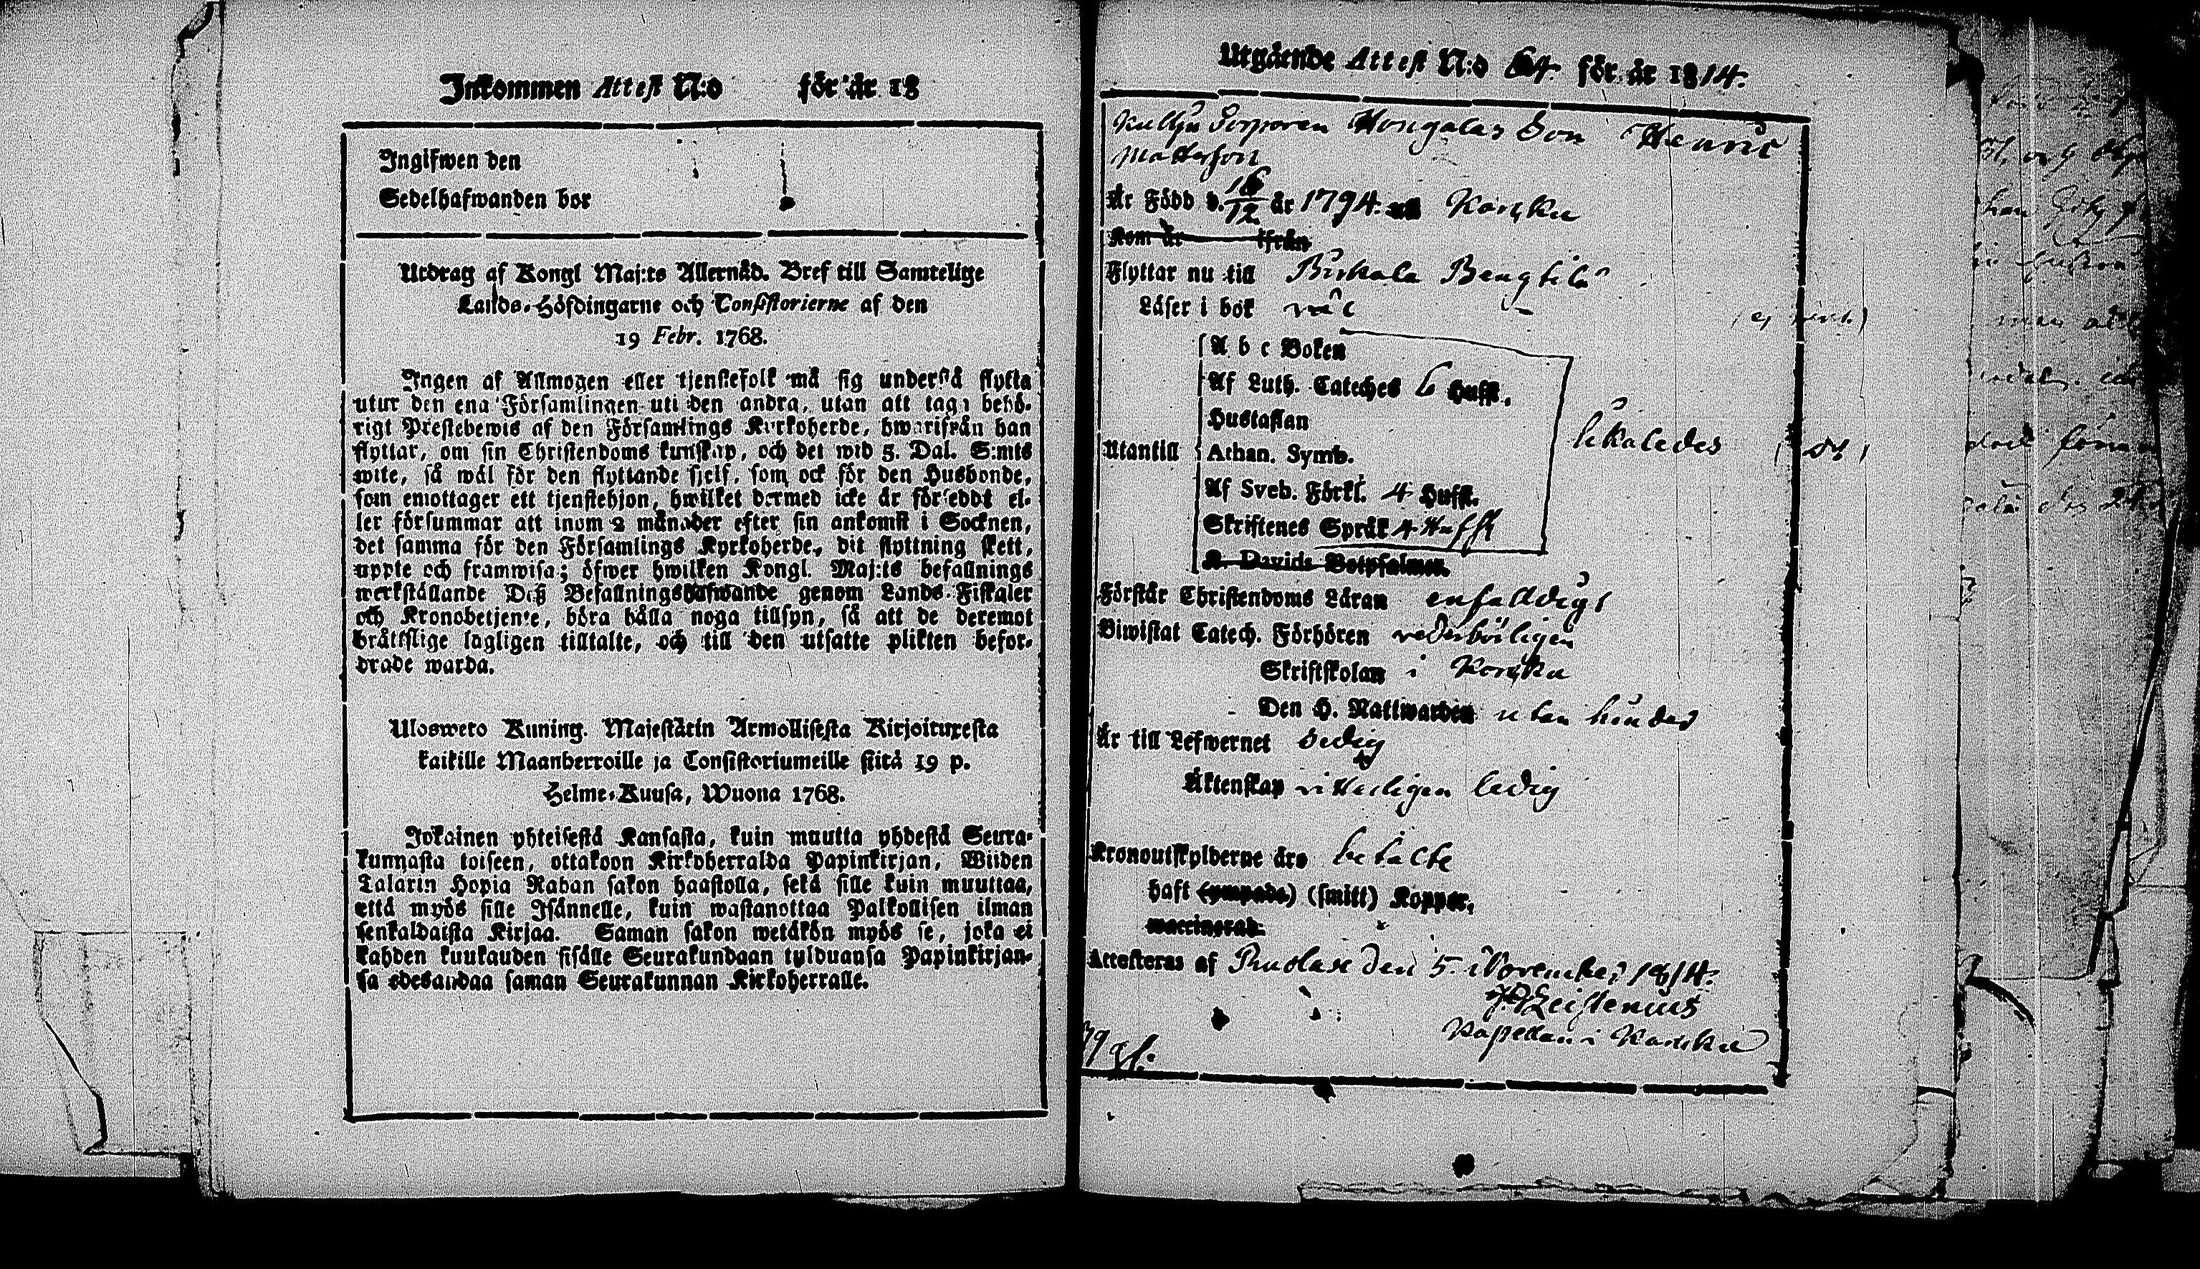 Inkommen Attest N:o för år 18
Ingifwen den
Sedelhafwanden bor
Utdrag af Kongl Maj:ts Allernåd. Bref till Samtelige
Lands-Höfdingarne och Consistorierne af den
19 Febr. 1768.
Ingen af Allmogen eller tjenstefolk må sig understå flytta
utur den ena Församlingen uti den andra, utan att taga behö-
rigt Prestebewis af den Församlings Kyrkoherde, hwarifrån han
flyttar, om sin Christendoms kunskap, och det wid 5. Dal. S:mts
wite, så wäl för den flyttande sjelf, som ock för den Husbonde,
som emottager ett tjenstehjon, hwilket dermed icke är förseddt el-
ler försummar att inom 2 månader efter sin ankomst i Socknen,
det samma för den Församlings Kyrkoherde, dit flyttning skett,
uppte och framwisa; öfwer hwilken Kongl. Maj:ts befallnings
werkställande Deß Befallningshafwande genom Lands-Fiskaler
och Kronobetjente, böra hålla noga tillsyn, så att de deremot
bråttslige lagligen tilltalte, och till den utsatte plikten befor-
drade warda.
Ulosweto Kuning. Majestätin Armollisesta Kirjoituxesta
kaikille Maanherroille ja Consistoriumeille siitä 19 p.
Helme-Kuusa, Wuona 1768.
Jokainen yhteisestä Kansasta, kuin muutta yhdestä Seura-
kunnasta toiseen, ottakoon Kirkoherralda Papinkirjan, Wiiden
Talarin Hopia Rahan sakon haastolla, sekä sille kuin muuttaa,
että myös sille Isännelle, kuin wastanottaa Palkollisen ilman
senkaldaista Kirjaa. Saman sakon wetäkön myös se, joka ei
kahden kuukauden sisälle Seurakundaan tulduansa Papinkirjan-
sa edesandaa saman Seurakunnan Kirkoherralle.
Utgående Attest N:o 64. för år 1814.
Son Henric
Mattsson
Är Född d. 16/12 år 1794. Koriku
Kom år ifrån
Flyttar nu till Bengtilä
Läser i bok
A b c Boken
Af Luth. Cateches 6 Hufst.
Hustaflan
Utantill Athan. Symb. likaledes
Af Sveb. Förkl. 4 Hufst.
Skriftenes Språk 4 Hufst
K. Davids Botpsalmer.
Förstår Christendoms Läran enfaldigt
Biwistat Catech. Förhören wederbörligen
Skriftskolan i
Den H. Nattwarden utan hinder
Är till Lefwernet sedig
Äktenskap witterligen ledig
Kronoutskylderne äro betalte
haft (ympade) (smitt) Koppor,
waccinerad.
Attesteras af den 5. November 1814.
Kapellan i